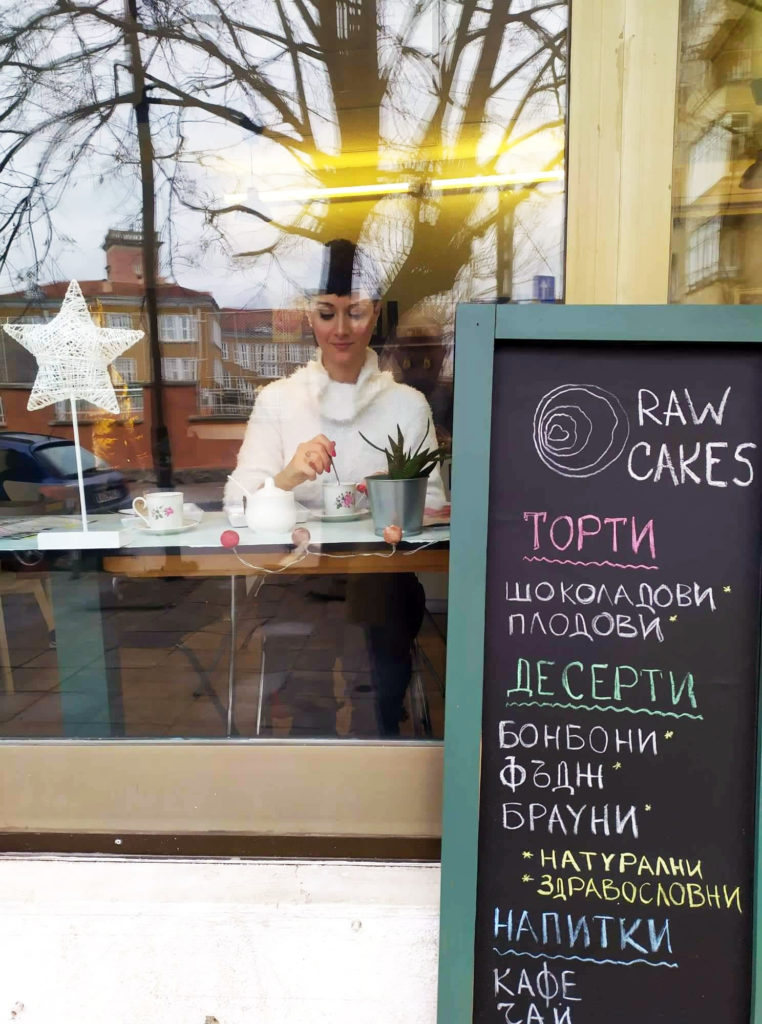 RAW
CAKES
ТОРТИ
ШОКОЛАДОВИ*
ПЛОДОВИ*
ДЕСЕРТИ
БОНБОНИ*
ФЪДЖ*
БРАУНИ*
*НАТУРАЛНИ
*ЗДРАВОСЛОВНИ
НАПИТКИ
КАФЕ
ЧАЙ